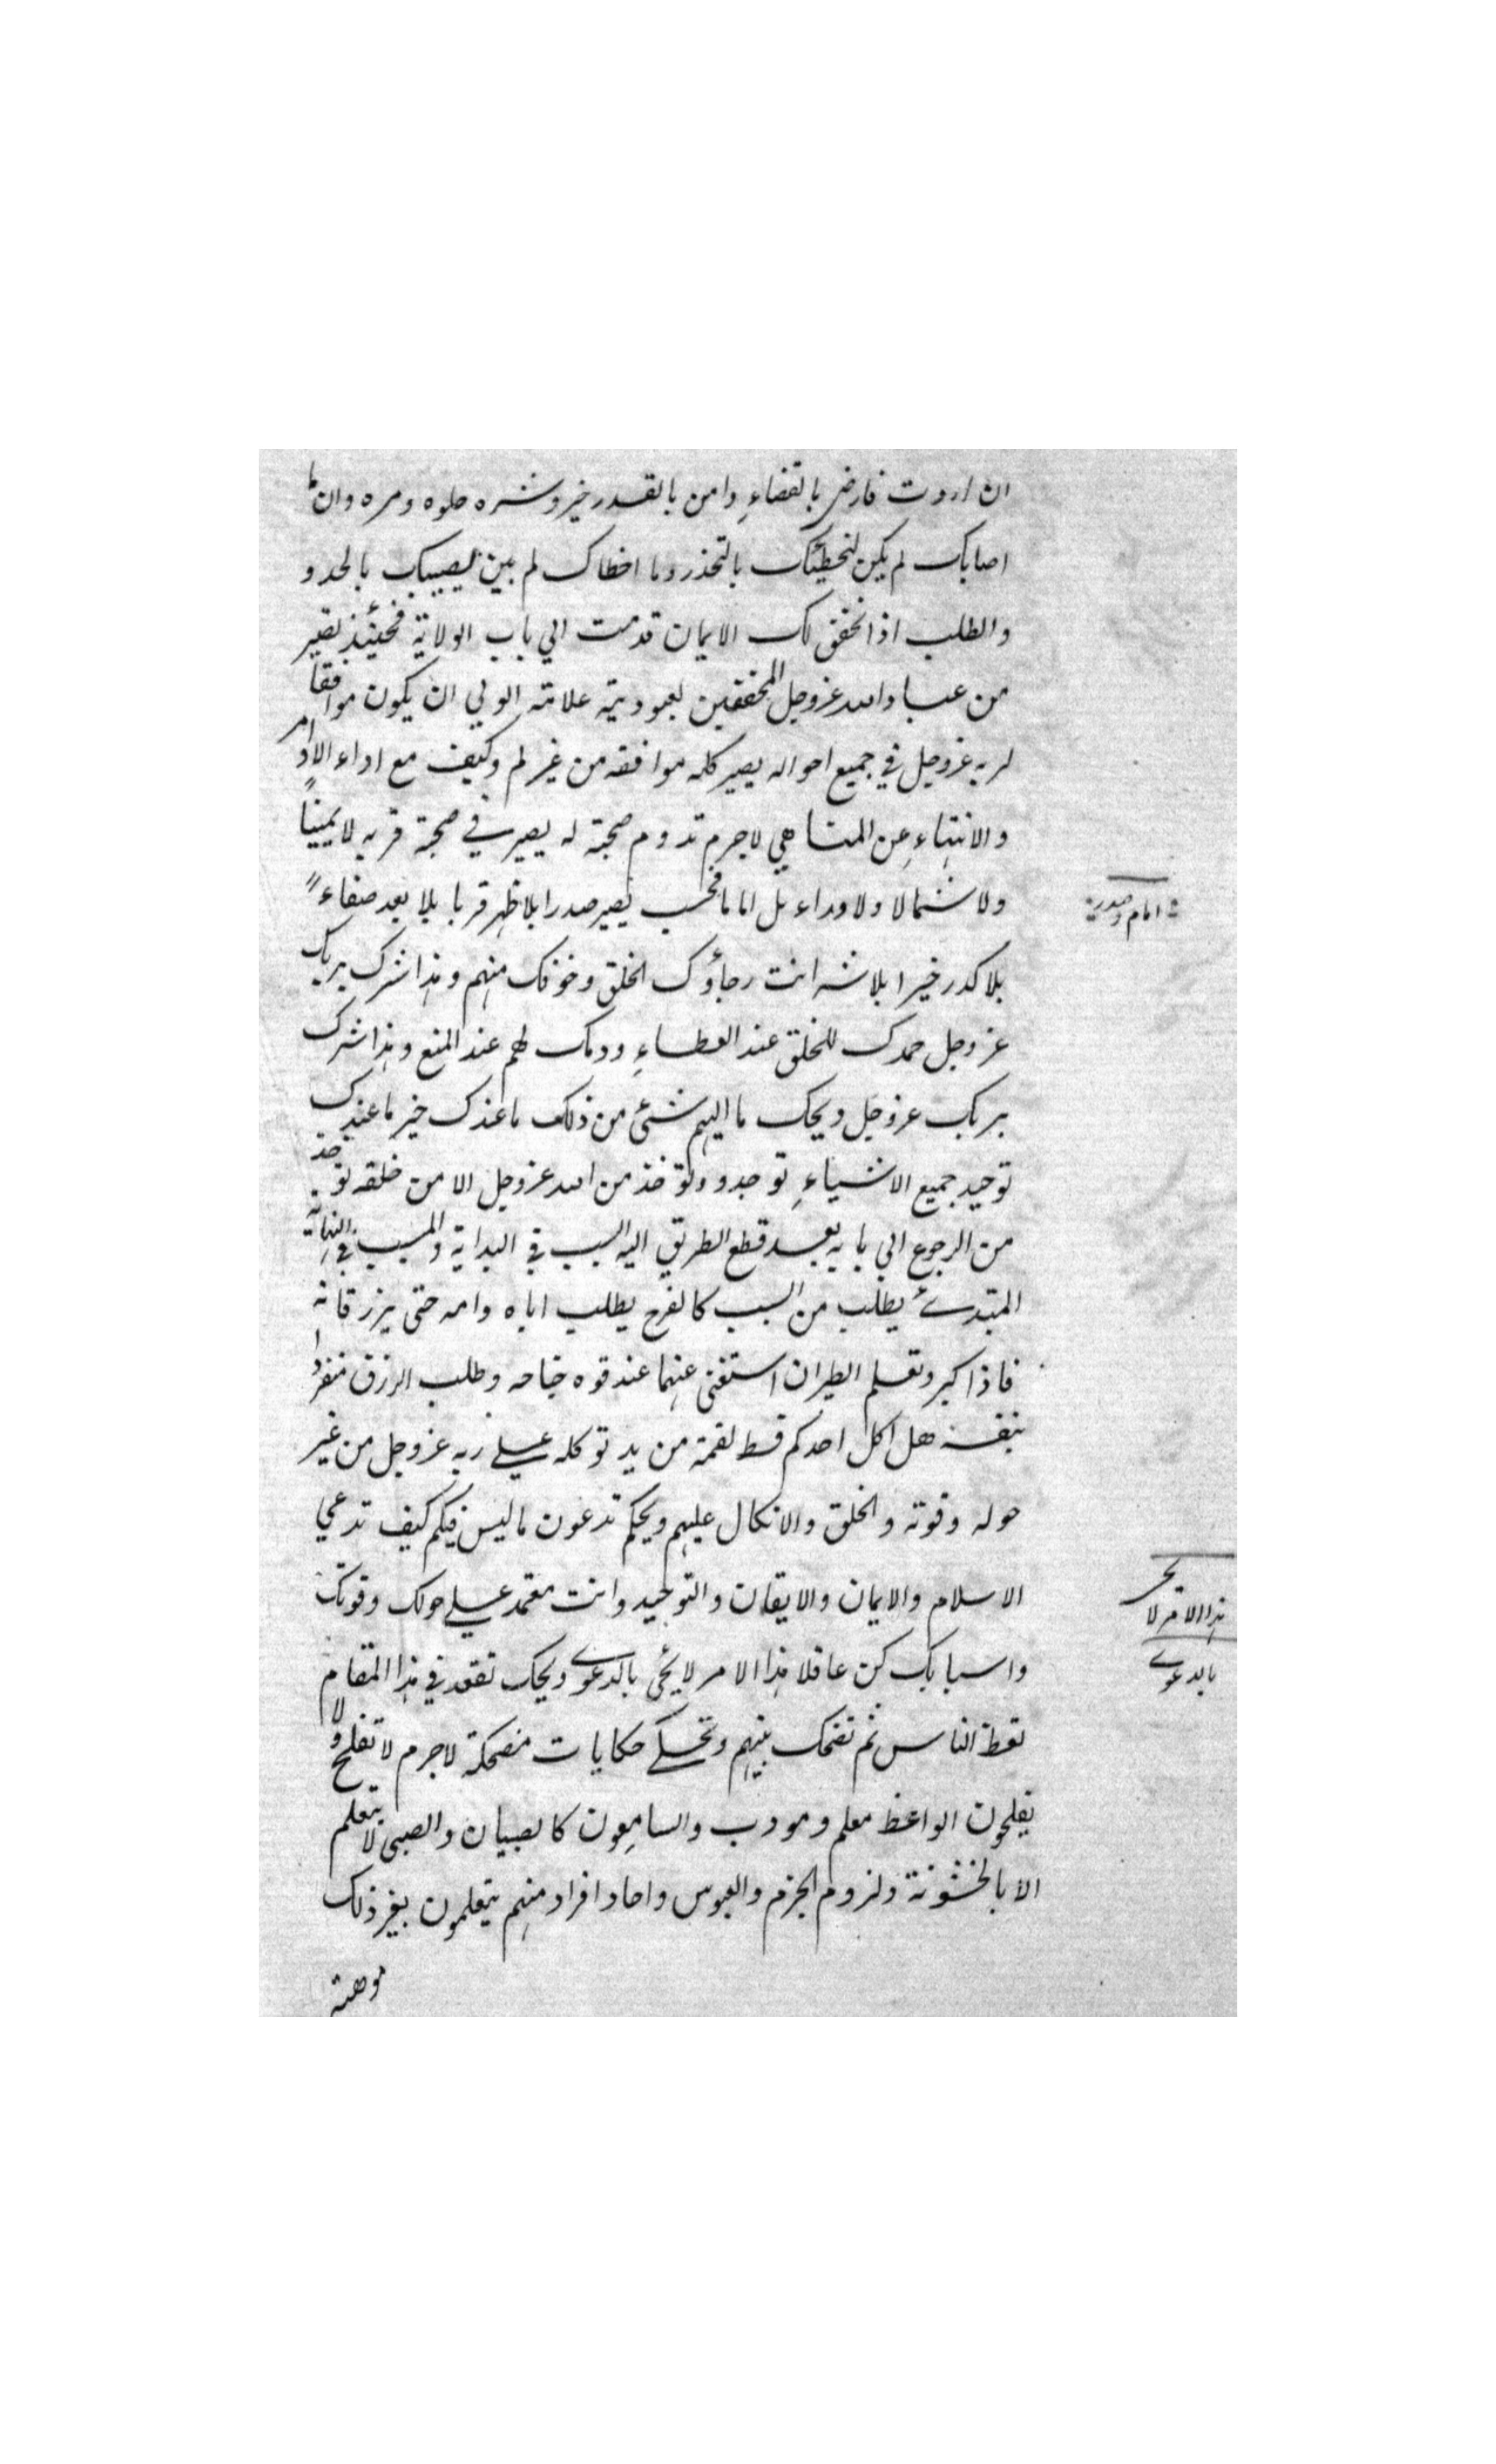 ان اردت فارض بالقضاءِ وامن بالقدر خير وشره حلوه ومره وان ما
اصابك لم يكن ليخطئك بالتحذر وما اخطاك لم يصيبك بالجد و
والطلب اذا تحقق لك الايمان قدمت الي باب الولاية فحينئذ تصير
من عباد الله عزوجل المحققين لعبوديته علامته الولي ان يكون موافقا
لربه عزوجل في جميع احواله يصير كله موافقه من غير لم وكيف مع اداء الاوامر
والانتهاءِ عن المناهي لاجرم تدوم صحبته له يصير في صحبة قربه لا يمينًا
ولا شمالا ولا وراء بل اماما فحسب يصير صدرا بلا ظهر قربا بلا بعد صفاءً
بلا كدر خيرا بلا شر انت رجاؤك الخلق وخوفك منهم وهذا شرك بربك
عزوجل حمدك للخلق عند العطاءِ وذمك لهم عند المنع وهذا شرك
بربك عزوجل ويحك ما اليهم شئ من ذلك ما عندك خير ما عندك
توحيد جميع الاشياءِ توجد وتؤخذ من الله عزوجل لا من خلقه تؤخذ
من الرجوع الي بابه بعد قطع الطريق اليه السبب في البداية والمسبب في النهاية
المبتدئ يطلب من السبب كالفرخ يطلب اباه وامه حتى يزرقانه
فاذا كبر وتعلم الطيران استغنى عنهما عند قوه جناحه وطلب الرزق منفردا
بنفسه هل اكل احدكم قط لقمة من يد توكله علي ربه عزوجل من غير
حوله وقوته والخلق والاتكال عليهم ويحكم تدعون ما ليس فيكم كيف تدعي
الاسلام والايمان والايقان والتوحيد وانت معتمد علي حولك وقوتك
واسبابك كن عاقلا هذا الامر لا يجئ بالدعوى ويحك تقعد في هذا المقام
تعظ الناس ثم تضحك بينهم وتحكي حكايات مضحكة لاجرم لا تفلح ولا
يفلحون الواعظ معلم ومودب والسامعون كالصبيان والصبي لا يتعلم
الا بالخشونة ولزوم الحزم والعبوس واحاد افراد منهم يتعلمون بغير ذلك
موهبة
امام وصدر
هذا الامر لا يجئ
بالدعوى